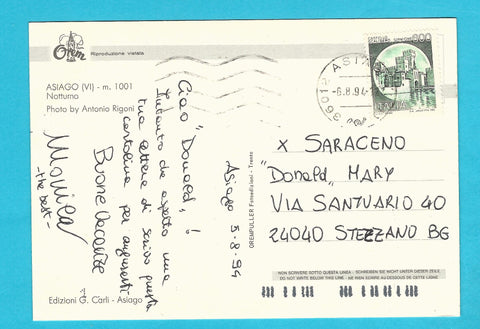 Orem
Riproduzione vietata
ASIAGO (VI) - m. 1001
Notturno
Photo by Antonio Rigoni
Ciao "Donald"!
Intanto che aspetto una
tua lettera ti scrivo questa
cartolina per augurarti
Buone Vacanze
Monica
-the best-
Asiago 5-8-94
OREMPULLER Fotoedizioni - Trento
Edizioni G. Carli - Asiago
ASIA
-6.8.94
3601
800
x SARACENO
"Donald" MARY
VIA SANTUARIO 40
24040 STEZZANO BG
NON SCRIVERE SOTTO QUESTA LINEA - SCHREIBEN SIE NICHT UNTER DIESER ZEILE
DO NOT WRITE BELOW THIS LINE - NE RIEN ECRIRE AU-DESSOUS DE CETTE LIGNE